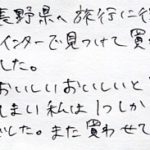 長野県へ旅行に行
インターで見つけて買
した。
おいしいおいしいと
しまい私は1つしか
した。また買わせて